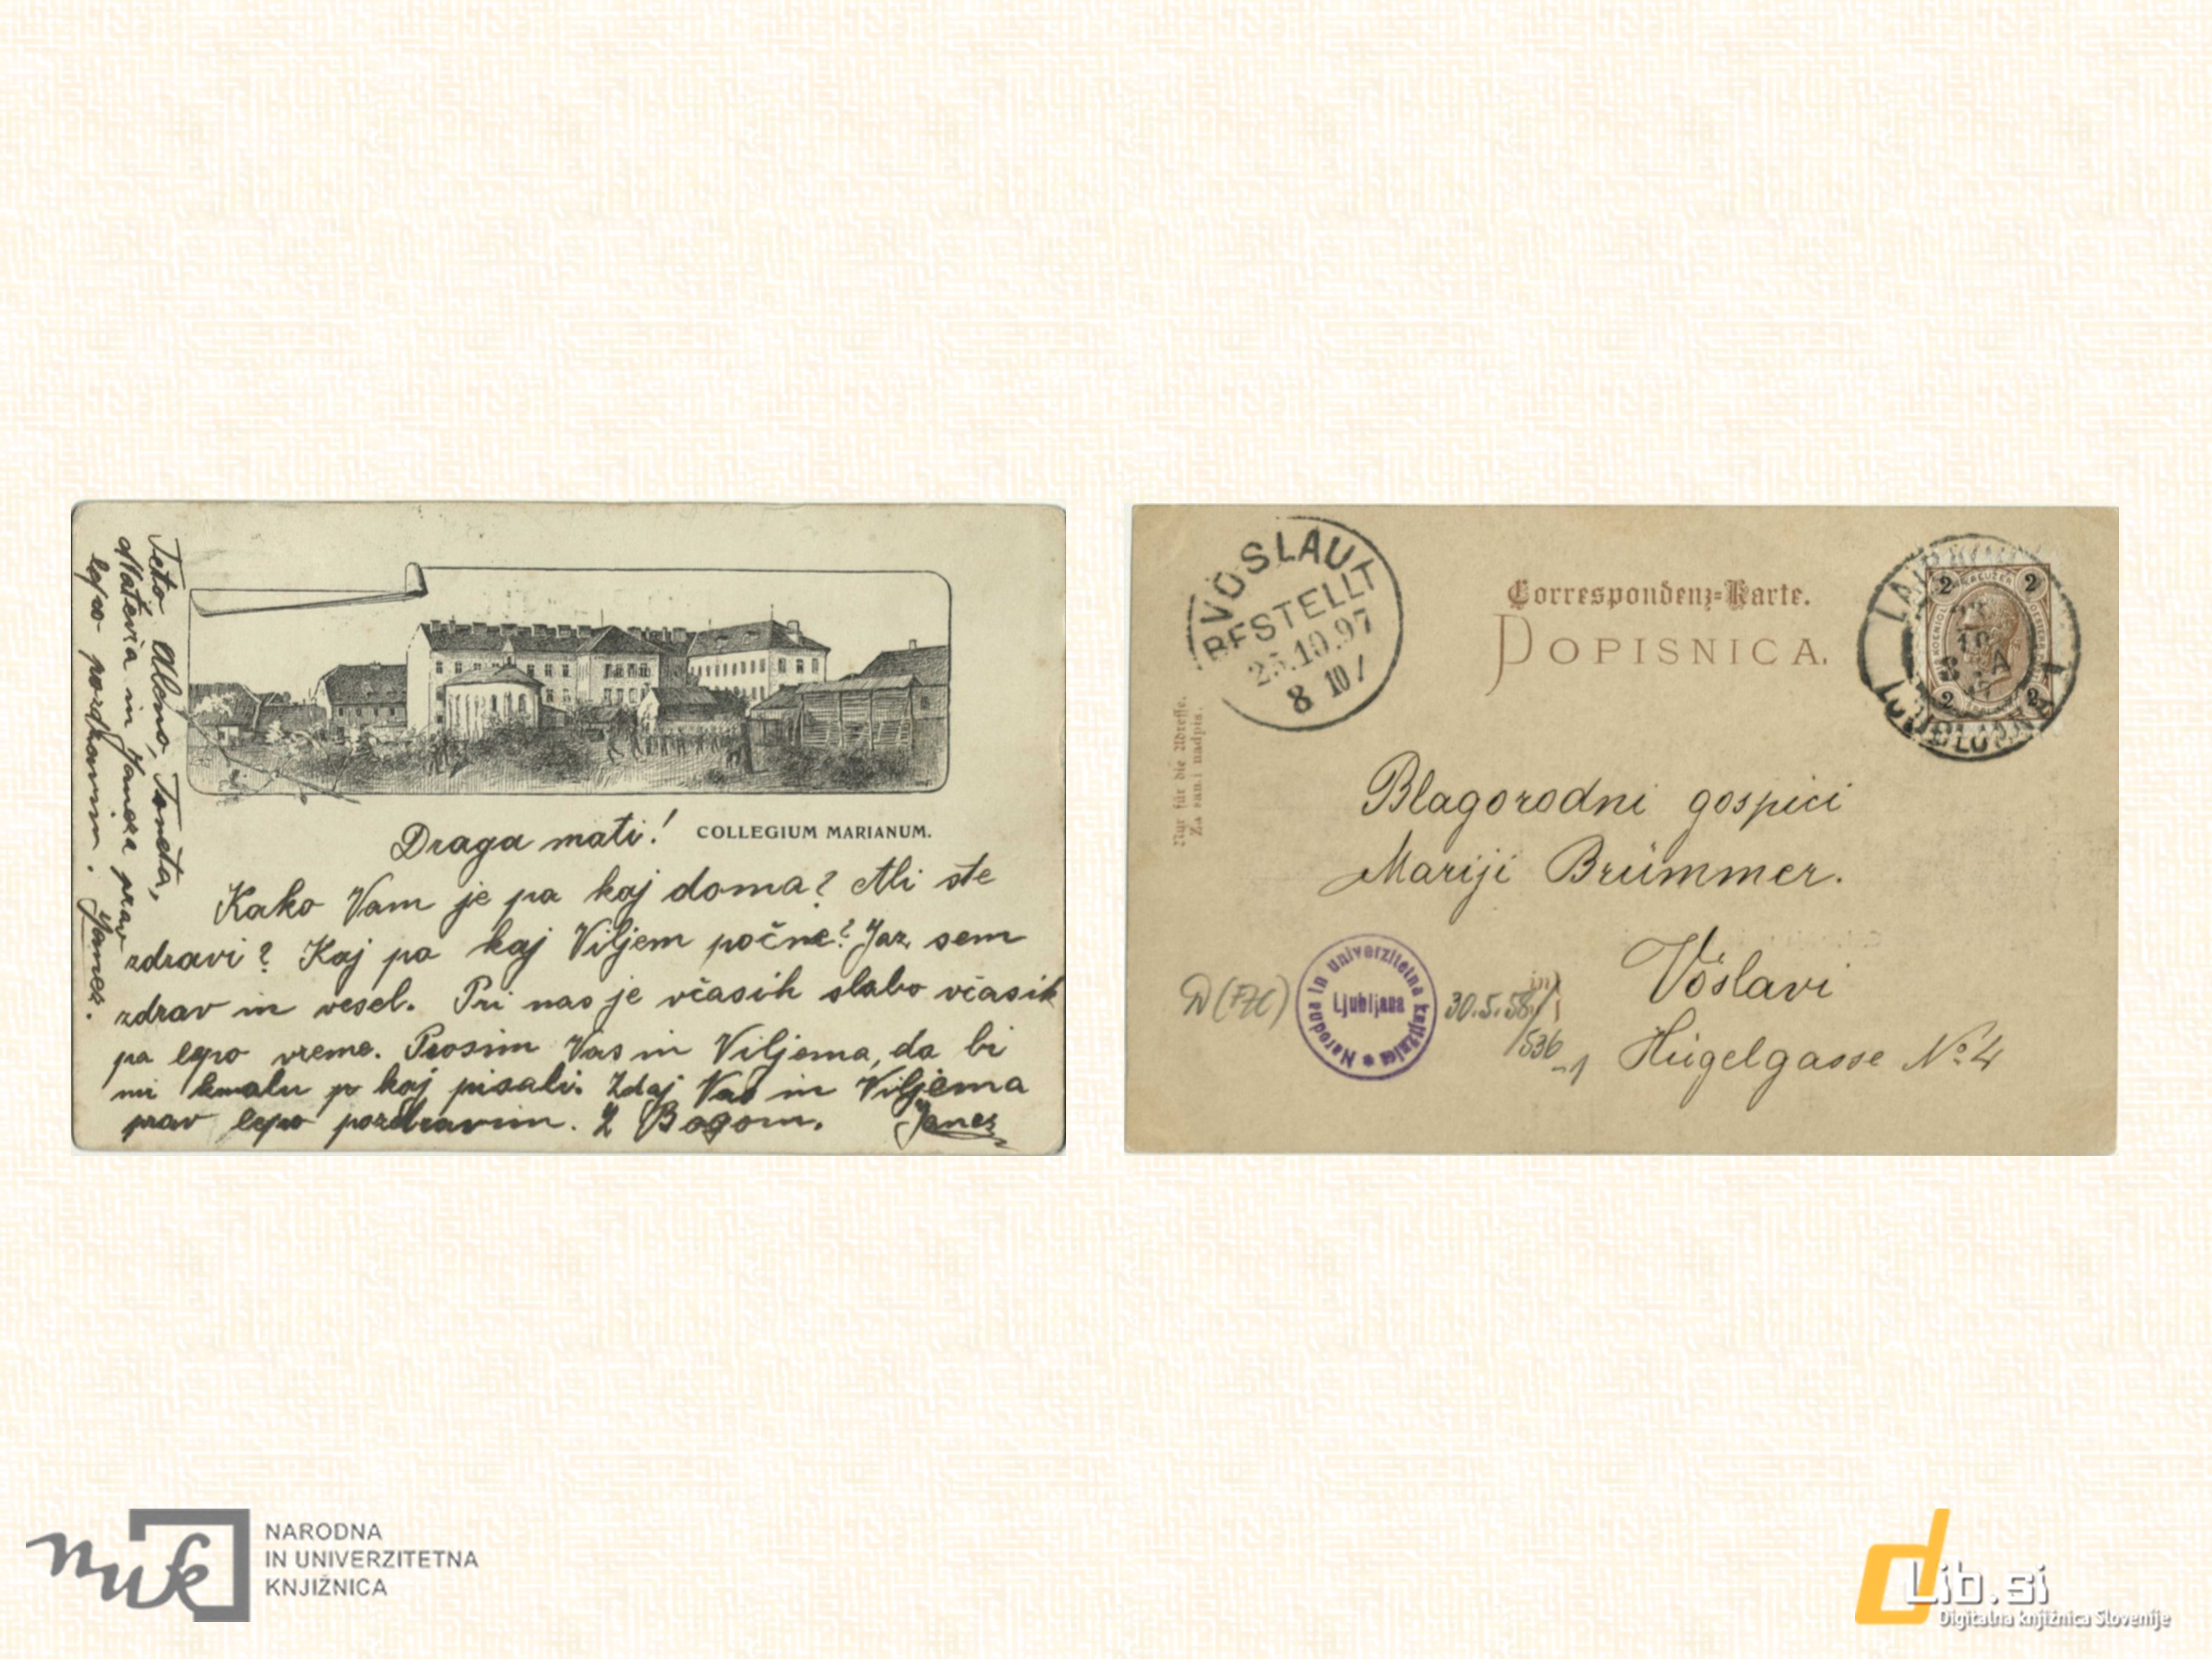 Teto Aleno, Toneta,
Matevža in Janeza prav
lepo pozdravim. Janez.
COLLEGIUM MARIANUM.
Draga mati!
Kako Vam je pa kaj doma? Ali ste
zdravi? Kaj pa kaj Viljem počne? Jaz sem
zdrav in vesel. Pri nas je včasih slabo včasih
pa lepo vreme. Prosim Vas in Viljema, da bi
mi kmalu p kaj pisali. Zdaj Vas in Viljema
prav lepo pozdravim. Z Bogom. Janez
VÖSLAU
BESTELLT
25.10.97
8
Correspondenz-Karte.
DOPISNICA.
Nur für die Adresse.
Za sami nadpis.
2 KREUZER 2
2 2
LAIBACH
LJUBLJANA
Blagorodni gospici
Mariji Brümmer.
in
Vöslavi
Hügelgasse No. 4
Narodna in univerzitetna knjižnica
Ljubljana
30.5.58
/536
-1
nuk
NARODNA
IN UNIVERZITETNA
KNJIŽNICA
dLib.si
Digitalna knjižnica Slovenije